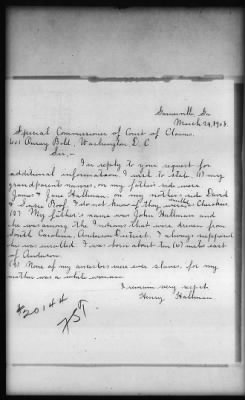 Gainesville Ga
March 24, 1908.
Special Commissioner of Court of Claims.
601 Ouray Bld., Washington D.C
Sir,-
In reply to your request for
additional information I wish to state (1) my
grandparents names, on my father side were
James & Jane Hallman, on my mother side David
& Susie Roof, I do not know if they were Cherokee
(2) My father's name was John Hallman and
he was among the Indians that were driven from
South Carolina, Anderson District. I always supposed
he was enrolled. I was born about ten (10) miles east
of Anderson.
(3) None of my ancestors were ever slaves, for my
mother was a white woman.
I remain very respct.
Henry Hallman
#20144